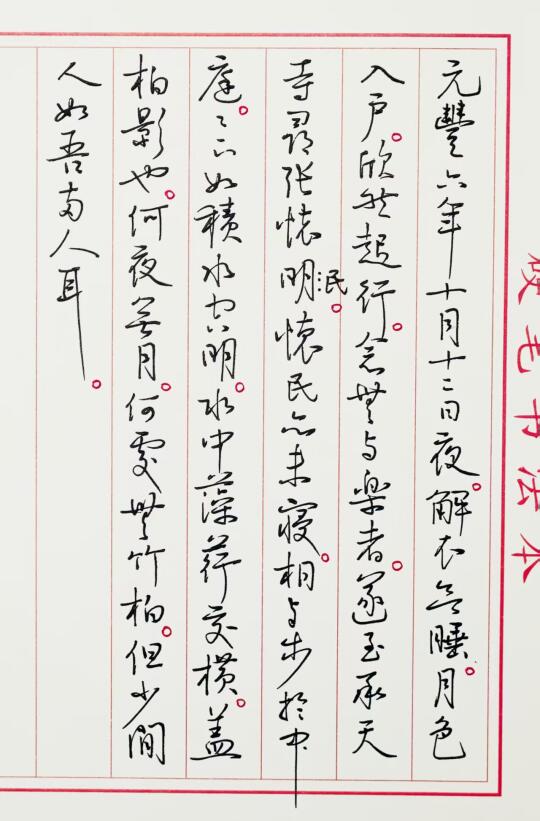 硬毛书法本
元豐六年十月十二日夜。解衣欲睡。月色
入户。欣然起行。念無与樂者。遂至承天
寺尋张懷明民。懷民亦未寝。相与步於中
庭。〻下如積水空明。水中藻荇交横。盖
柏影也。何夜無月。何處無竹柏。但少閒
人如吾两人耳。